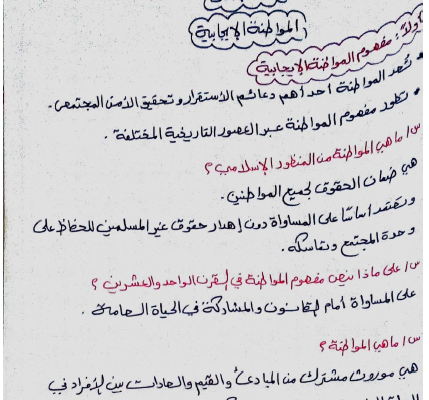 المواطنة الإيجابية
أولاً: مفهوم المواطنة الإيجابية
• تُعد المواطنة أحد أهم دعائم الاستقرار وتحقيق الأمن المجتمعي.
• تطور مفهوم المواطنة عبر العصور التاريخية المختلفة.
س/ ما هي المواطنة من المنظور الإسلامي؟
هي ضمان الحقوق لجميع المواطنين.
وتعتمد أساسًا على المساواة دون إهدار حقوق غير المسلمين للحفاظ على
وحدة المجتمع وتماسكه.
س/ على ماذا ينص مفهوم المواطنة في القرن الواحد والعشرين؟
على المساواة أمام القانون والمشاركة في الحياة العامة.
س/ ما هي المواطنة؟
هي موروث مشترك من المبادئ والقيم والعادات بين الأفراد في